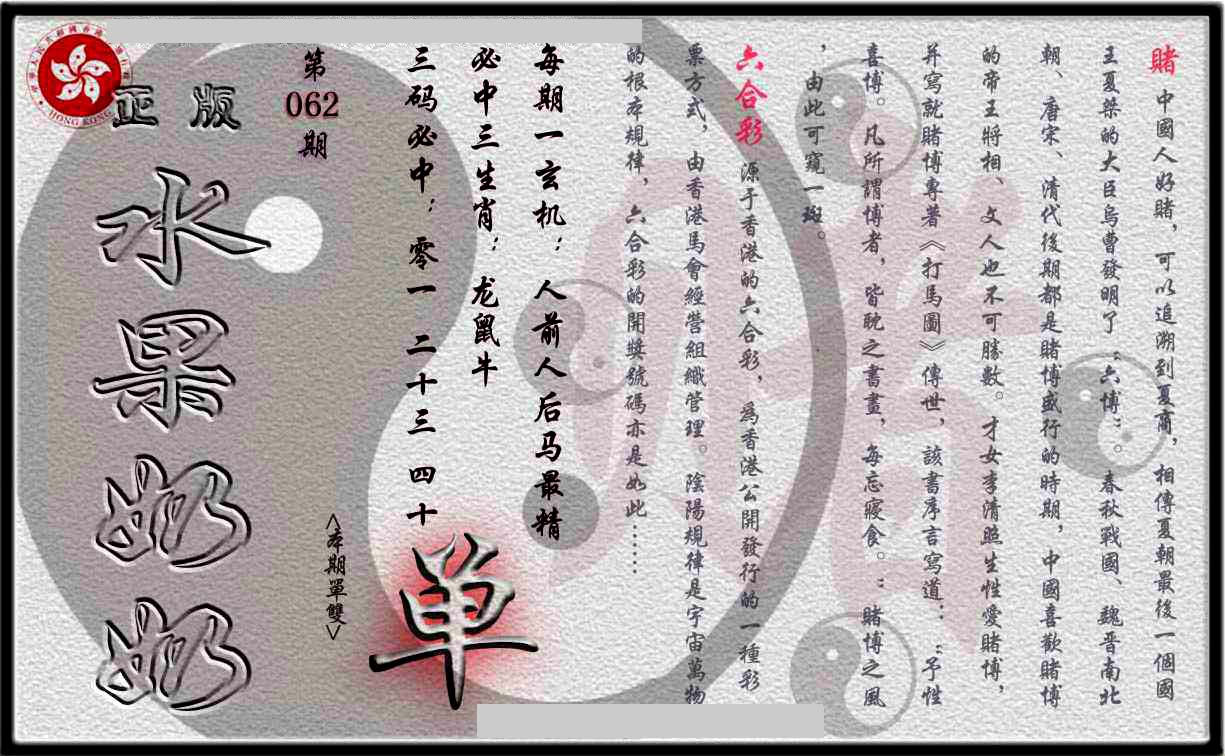 賭 中國人好賭，可以追溯到夏商，相傳夏朝最後一個國
王夏桀的大臣烏曹發明了“六博”。春秋戰國、魏晋南北
朝、唐宋、清代後期都是賭博盛行的時期，中國喜歡賭博
的帝王將相、文人也不可勝數。才女李清照生性愛賭博，
并寫就賭博專著《打馬圖》傳世，該書序言寫道：“予性
喜博。凡所謂博者，皆耽之書畫，每忘寢食。”賭博之風
，由此可窺一斑。
六合彩 源于香港的六合彩，為香港公開發行的一種彩
票方式，由香港馬會經營組織管理。陰陽規律是宇宙萬物
的根本規律，六合彩的開獎號碼亦是如此……
每期一玄机：人前人后马最精
必中三生肖：龙鼠牛
三码必中：零一 二十三 四十
单
<本期單雙>
第
062
期
正版
水果奶奶
HONG KONG